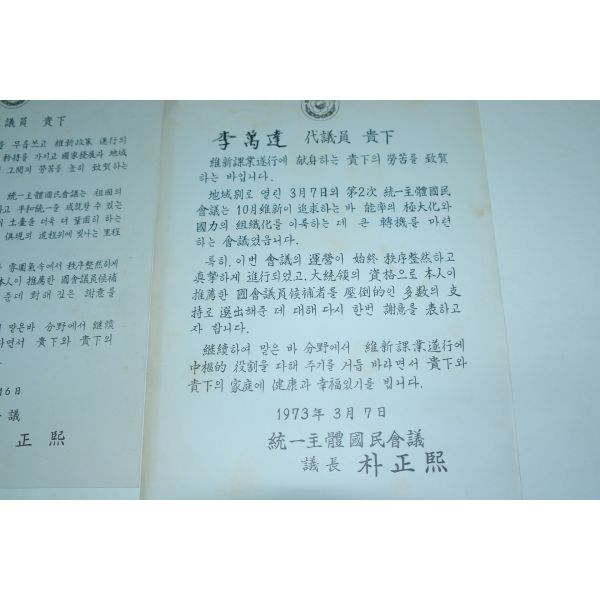 議員 貴下
를 무릅쓰고 維新政策 遂行의
矜持를 가지고 國家發展과 地域
그間의 勞苦를 높히 致賀하는
統一主體國民會議는 祖國의
하고 平和統一을 成就할 수 있는
의 土臺를 더욱 더 鞏固히 하는
俱現의 道程위에 빛나는 里程
雰圍氣속에서 秩序整然하게
本人이 推薦한 國會議員候補
준데 對해 깊은 謝意를
맡은바 分野에서 継續
하면서 貴下와 貴下의
6日
議
正熙
李萬達 代議員 貴下
維新課業遂行에 献身하는 貴下의 勞苦를 致賀
하는 바입니다.
地域別로 열린 3月7日의 第2次 統一主體國民
會議는 10月維新이 追求하는 바 能率의 極大化와
國力의 組織化를 이룩하는 데 큰 轉機를 마련
하는 會議였읍니다.
특히, 이번 會議의 運營이 始終 秩序整然하고
真摯하게 進行되었고, 大統領의 資格으로 本人이
推薦한 國會議員候補者를 壓倒的인 多數의 支
持로 選出해준 데 대해 다시 한번 謝意를 表하고
자 합니다.
継續하여 맡은 바 分野에서 維新課業遂行에
中樞的 役割을 다해 주기를 거듭 바라면서 貴下와
貴下의 家庭에 健康과 幸福있기를 빕니다.
1973年 3月 7日
統一主體國民會議
議長 朴正熙